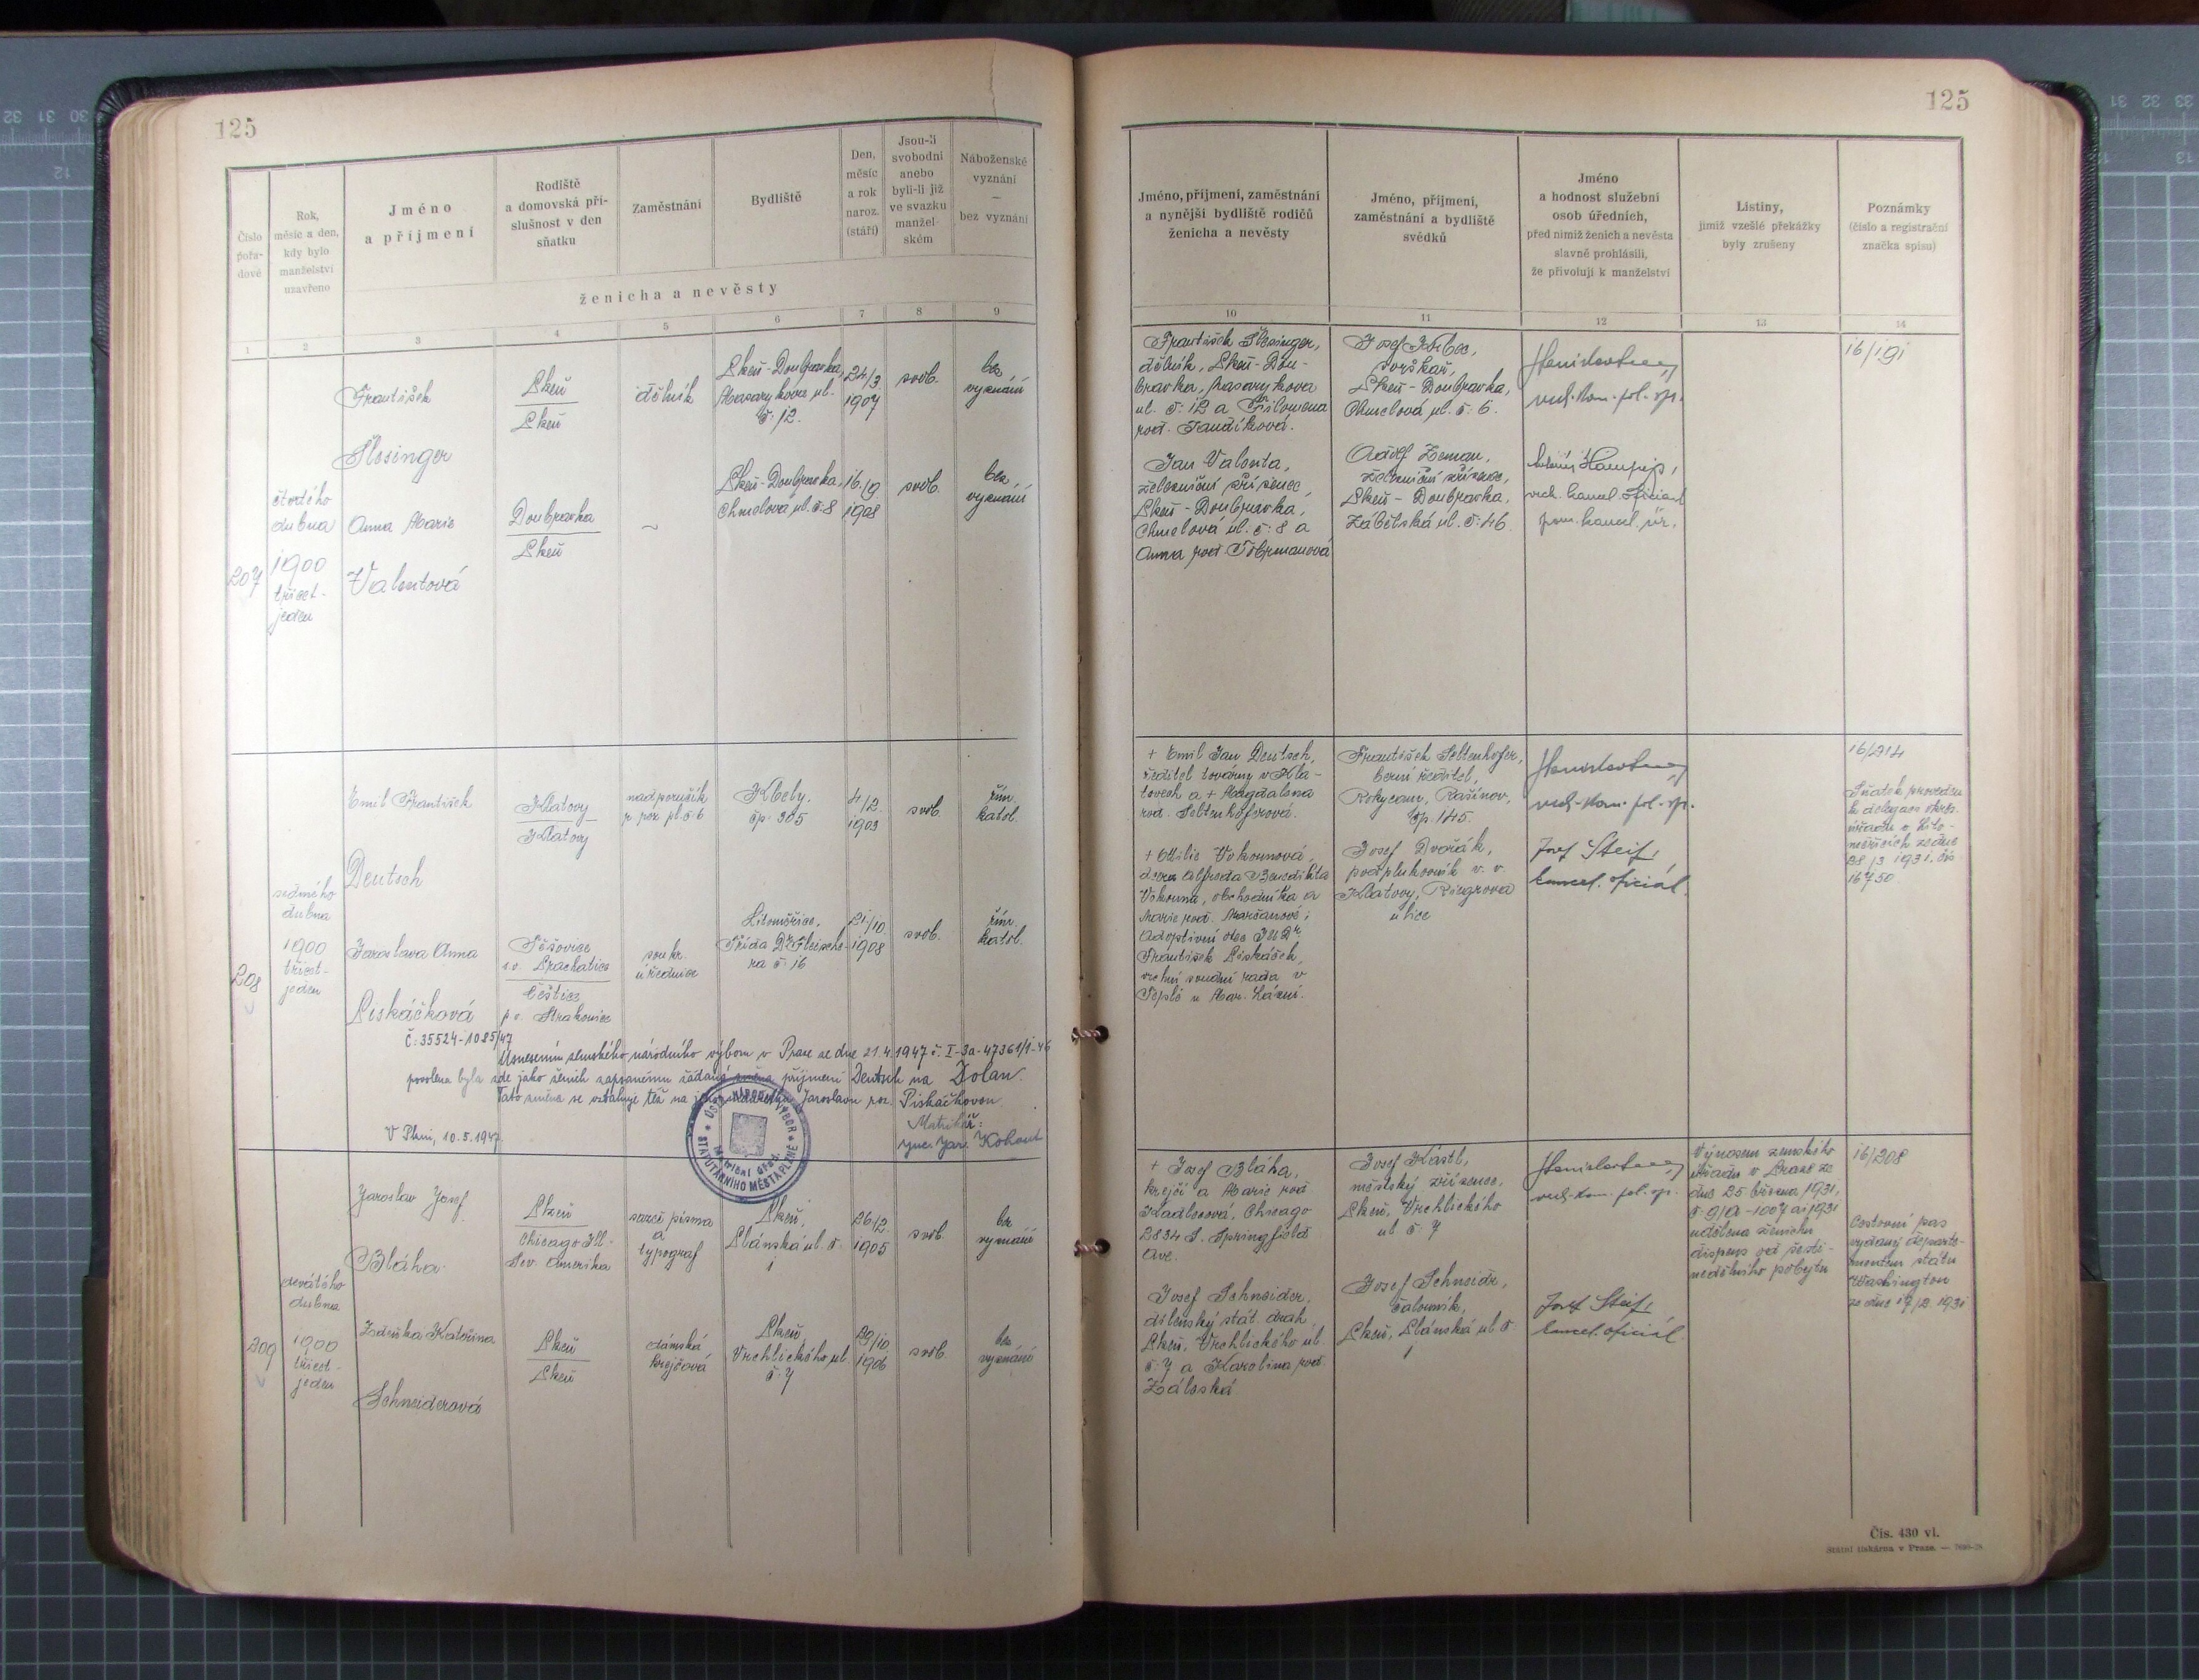 125
Číslo pořadové
Rok, měsíc a den, kdy bylo manželství uzavřeno
Jméno a příjmení
Rodiště a domovská příslušnost v den sňatku
Zaměstnání
Bydliště
Den, měsíc a rok naroz. (stáří)
Jsou-li svobodni anebo byli-li již ve svazku manželském
Náboženské vyznání — bez vyznání
ženicha a nevěsty
1 2 3 4 5 6 7 8 9
207
čtvrtého
dubna
1900
třicet-
jeden
František
Šlesinger
Plzeň
Plzeň
dělník
Plzeň-Doubravka,
Masarykova ul.
č. 12.
24/3
1907
svob.
bez
vyznání
Anna Marie
Valentová
Doubravka
Plzeň
~
Plzeň-Doubravka,
Chmelová ul. č. 8
16./9
1908
svob.
bez
vyznání
208
sedmého
dubna
1900
třicet-
jeden
Emil František
Deutsch
Klatovy
Klatovy
nadporučík
p. pěš. pl. č. 6
Kbely.
čp. 305
4/2.
1903
svob.
řím.
katol.
Jaroslava Anna
Piskáčková
Těšovice
s.o. Prachatice
Češtice
p.o. Strakonice
soukr.
úřednice
Litoměřice,
Třída Dr Fleische-
ra č. 16
21./10.
1908
svob.
řím.
katol.
Č: 35524-1085/47
Usnesením zemského národního výboru v Praze ze dne 21.4.1947 č. I-3a-47361/1-46
povolena byla zde jako ženich zapsanému žádaná změna příjmení Deutsch na Dolan.
Tato změna se vztahuje též na jeho manželku Jaroslavu roz. Piskáčkovou.
V Plzni, 10.5.1947.
Matrikář:
Jar. Kohout
ÚSTŘ. NÁRODNÍ VÝBOR
STATUTÁRNÍHO MĚSTA PLZNĚ
Matriční úřad.
209
devátého
dubna
1900
třicet-
jeden
Jaroslav Josef
Bláha
Plzeň
Chicago Ill-
Sev. Amerika
sazeč písma
a
typograf
Plzeň,
Plánská ul. č.
1
26/2
1905
svob.
bez
vyznání
Zdeňka Kateřina
Schneiderová
Plzeň
Plzeň
dámská
krejčová
Plzeň
Vrchlického ul.
č. 7
29/10.
1906
svob.
bez
vyznání
125
Jméno, příjmení, zaměstnání a nynější bydliště rodičů ženicha a nevěsty
Jméno, příjmení, zaměstnání a bydliště svědků
Jméno a hodnost služební osob úředních, před nimiž ženich a nevěsta slavně prohlásili, že přivolují k manželství
Listiny, jimiž vzešlé překážky byly zrušeny
Poznámky (číslo a registrační značka spisu)
10 11 12 13 14
František Šlesinger,
dělník, Plzeň-Dou-
bravka, Masarykova
ul. č. 12 a Filomena
roz. Tandíková.
Jan Valenta,
železniční zřízenec
Plzeň-Doubravka,
Chmelová ul. č. 8 a
Anna roz.
Josef
Plzeň-Doubravka,
Chmelová ul. č. 6.
Adolf Zeman,
železniční zřízenec,
Plzeň-Doubravka,
Zábělská ul. č. 46
vrch. kom. pol. sp.
vrch. kancel. oficiant
pom. kancel. úř.
16/191
+ Emil Jan Deutsch,
ředitel továrny v Kla-
tovech a + Magdalena
roz. Seltenhoferová.
+ Otilie Vokounová,
dcera Alfreda Benedikta
Vokouna, obchodníka a
Marie roz.
Adoptivní otec JUDr.
František Piskáček,
vrchní soudní rada v
Teplé u Mar. Lázní.
František Seltenhofer,
berní ředitel,
Rokycany, Rašínov,
čp. 145.
Josef Dvořák,
podplukovník v. v.
Klatovy, Riegrova
ulice
vrch. kom. pol. sp.
Josef Steif,
kancel. oficiál.
16/214
Sňatek proveden
z delegace okres.
úřadu v Lito-
měřicích ze dne
28/3 1931. čís.
16750.
+ Josef Bláha,
krejčí a Marie roz.
Kadlecová, Chicago
2834 S. Springfield
Ave.
Josef Schneider,
dílenský stát. drah
Plzeň, Vrchlického ul.
č. 7 a Karolina roz.
Záleská
Josef Kästl,
městský zřízenec,
Plzeň, Vrchlického
ul. č. 7
Josef Schneidr,
čalouník,
Plzeň, Plánská ul. č.
1
vrch. kom. pol. sp.
Josef Steif,
kancel. oficiál.
Výnosem zemského
úřadu v Praze ze
dne 25 března 1931,
č. 9/A-1007 ai 1931
udělena ženichu
dispens od šesti-
nedělního pobytu
16/208
Cestovní pas
vydaný departe-
mentem státu
Washington
ze dne 17/2 1931
Čís. 430 vl.
Státní tiskárna v Praze.